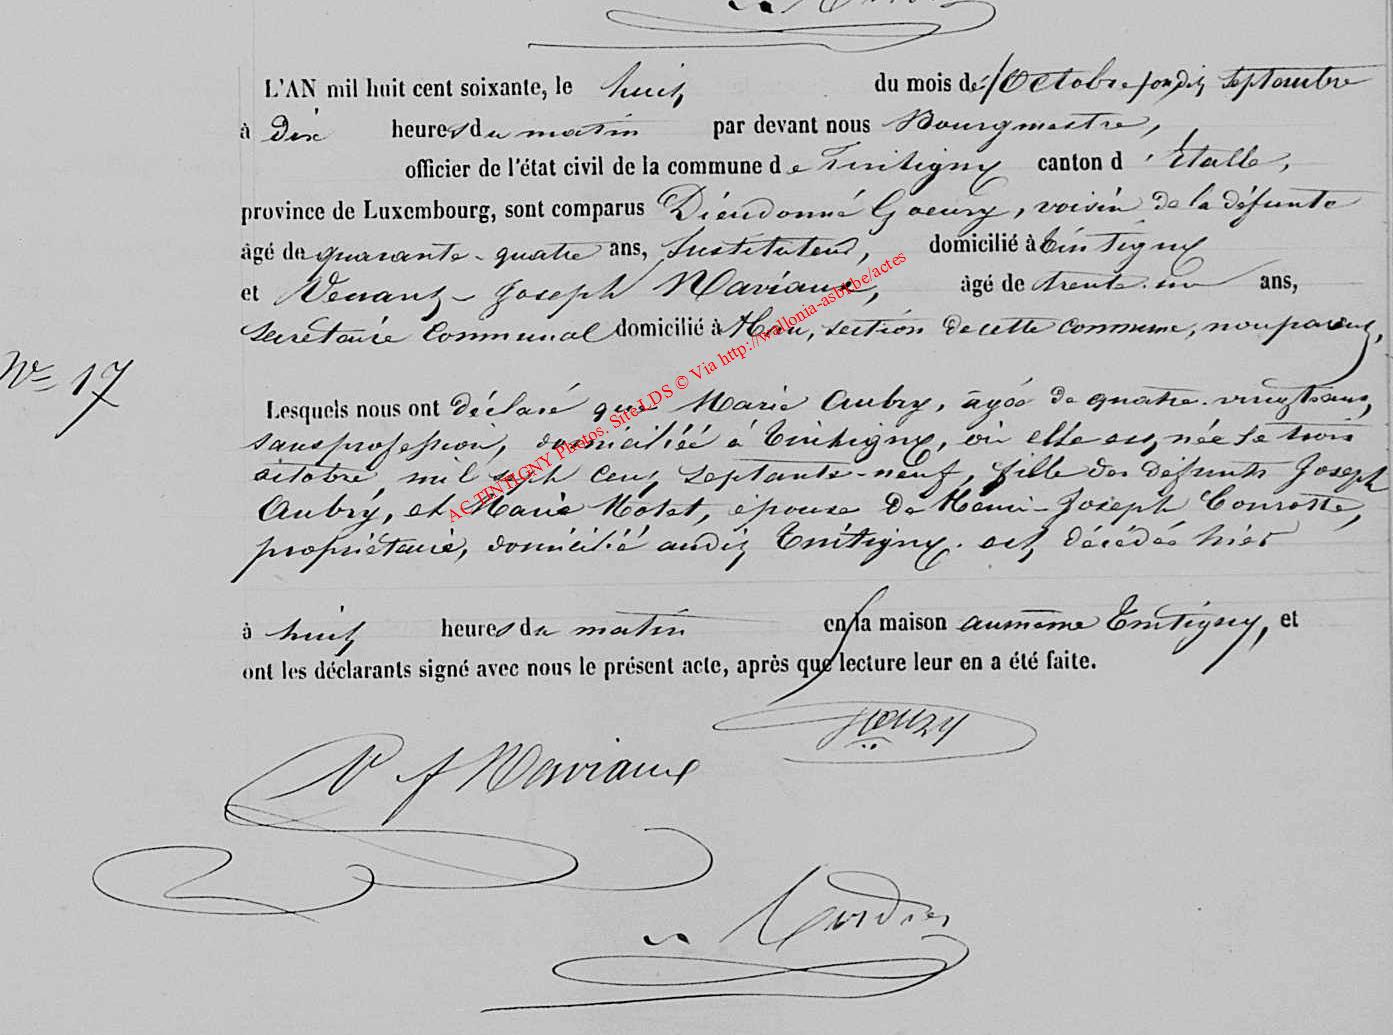 L'AN mil huit cent soixante, le huit du mois de Octobre septembre
à dix heures du matin par devant nous Bourgmestre,
officier de l'état civil de la commune de Tintigny canton d'Etalle,
province de Luxembourg, sont comparus Dieudonné Goeury, voisin de la défunte
âgé de quarante-quatre ans, Instituteur, domicilié à Tintigny
et Venant-Joseph Naviaux, âgé de trente-un ans,
secrétaire communal domicilié à Han, section de cette commune, non parent,
N° 17
Lesquels nous ont déclaré que Marie Aubry, âgée de quatre-vingt ans,
sans profession, domiciliée à Tintigny, où elle est née le trois
octobre mil sept cent septante-neuf, fille des défunts Joseph
Aubry, et Marie Motet, épouse de Henri-Joseph Conrotte,
propriétaire, domicilié audit Tintigny. est décédée hier
à huit heures du matin en la maison au même Tintigny, et
ont les déclarants signé avec nous le présent acte, après que lecture leur en a été faite.
Goeury
V J Naviaux
AC TINTIGNY Photos. Site LDS © Via http://wallonia-asbl.be/actes